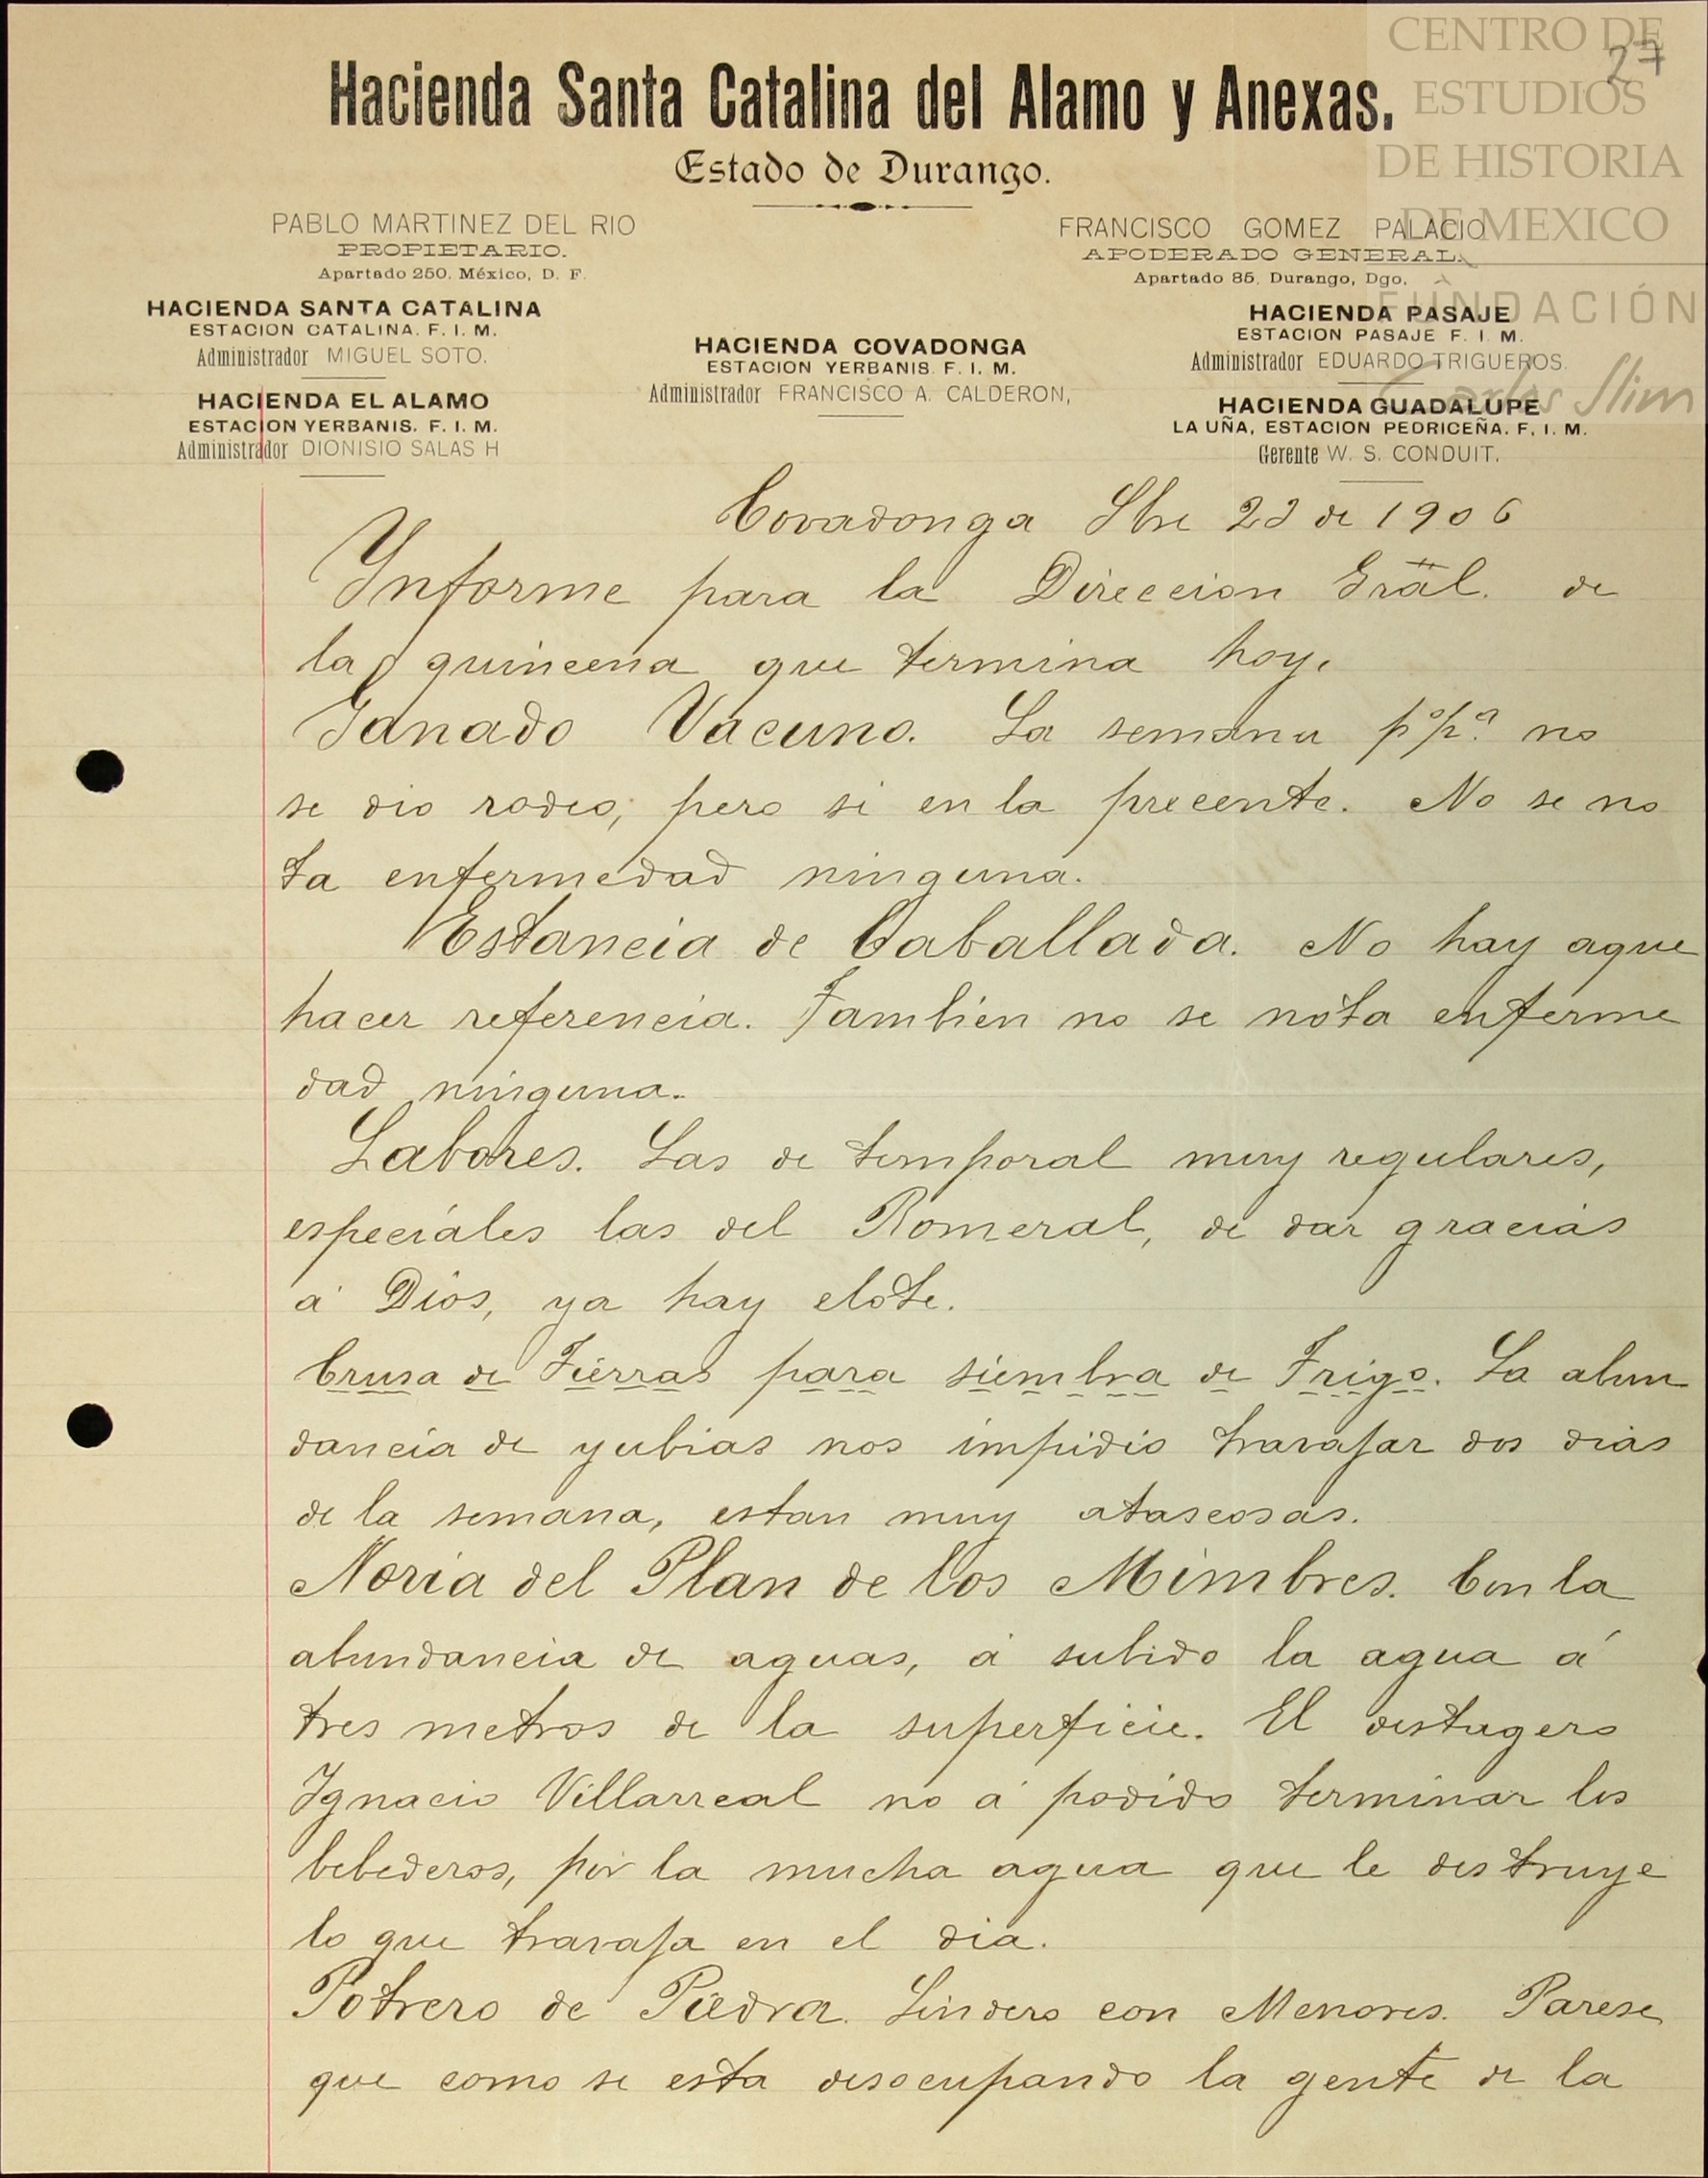 CENTRO DE
ESTUDIOS
DE HISTORIA
DE MEXICO
FUNDACIÓN
Carlos Slim
27
Hacienda Santa Catalina del Alamo y Anexas.
Estado de Durango.
PABLO MARTINEZ DEL RIO
PROPIETARIO.
Apartado 250. México, D. F.
FRANCISCO GOMEZ PALACIO
APODERADO GENERAL.
Apartado 85, Durango, Dgo.
HACIENDA SANTA CATALINA
ESTACION CATALINA. F. I. M.
Administrador MIGUEL SOTO.
HACIENDA EL ALAMO
ESTACION YERBANIS. F. I. M.
Administrador DIONISIO SALAS H
HACIENDA COVADONGA
ESTACION YERBANIS. F. I. M.
Administrador FRANCISCO A. CALDERON,
HACIENDA PASAJE
ESTACION PASAJE F. I. M.
Administrador EDUARDO TRIGUEROS.
HACIENDA GUADALUPE
LA UÑA, ESTACION PEDRICEÑA. F. I. M.
Gerente W. S. CONDUIT.
Covadonga Sbre 22 de 1906
Ynforme para la Direccion Gral. de
la quincena que termina hoy.
Ganado Vacuno. La semana pº pª no
se dio rodeo; pero si en la precente. No se no
ta enfermedad ninguna.
Estancia de Caballada. No hay aque
hacer referencia. Tambien no se nota enferme
dad ninguna.
Labores. Las de temporal muy regulares,
especiales las del Romeral, de dar gracias
á Dios, ya hay elote.
Crusa de Tierras para siembra de Trigo. La abun
dancia de yubias nos impidio travajar dos dias
de la semana, estan muy atascosas.
Noria del Plan de los Mimbres. Con la
abundancia de aguas, á subido la agua á
tres metros de la superficie. El destagero
Ignacio Villarreal no á podido terminar los
bebederos, por la mucha agua que le destruye
lo que travaja en el dia.
Potrero de Piedra. Lindero con Menores. Parese
que como se esta desocupando la gente de la